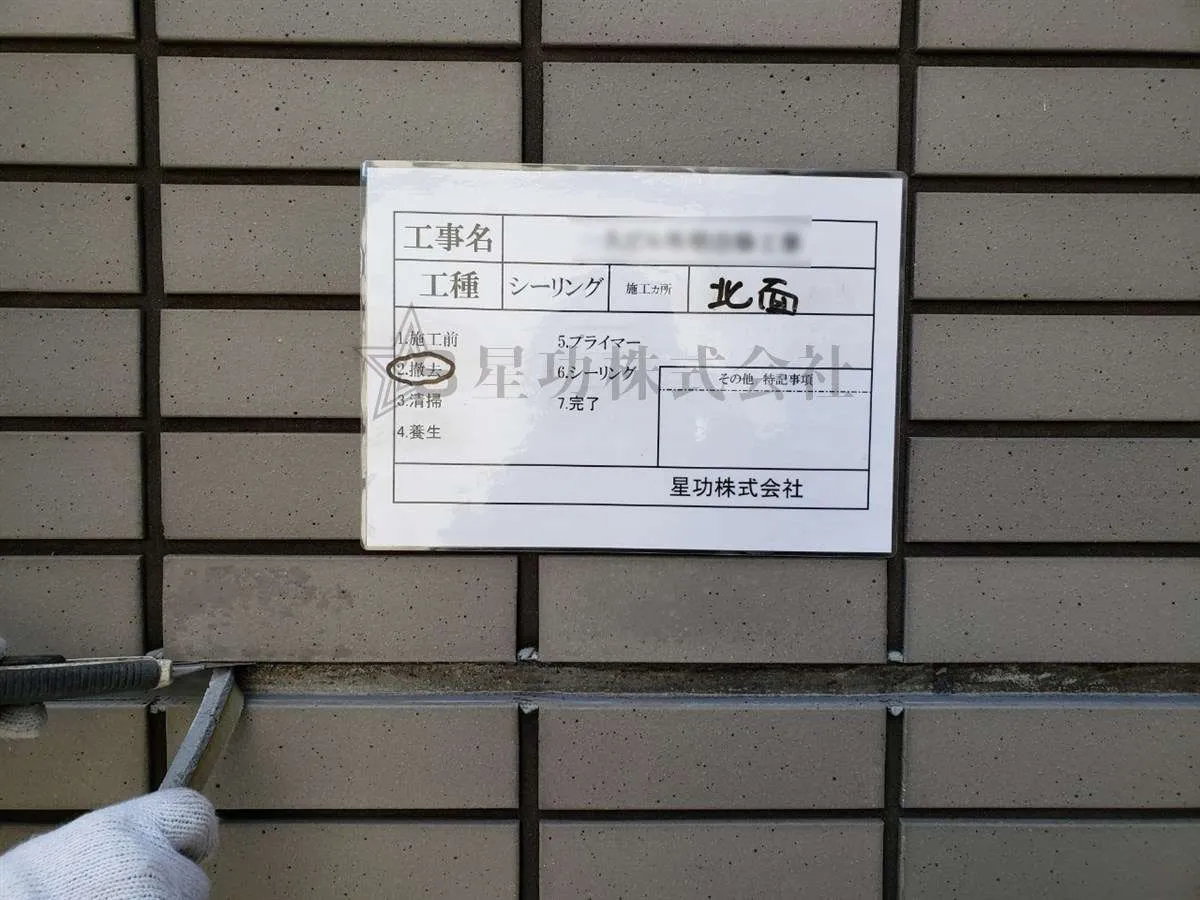 工事名
工種 シーリング 施工ヵ所 北面
1.施工前 5.プライマー
2.撤去 6.シーリング
3.清掃 7.完了
4.養生
その他 特記事項
星功株式会社
星功株式会社